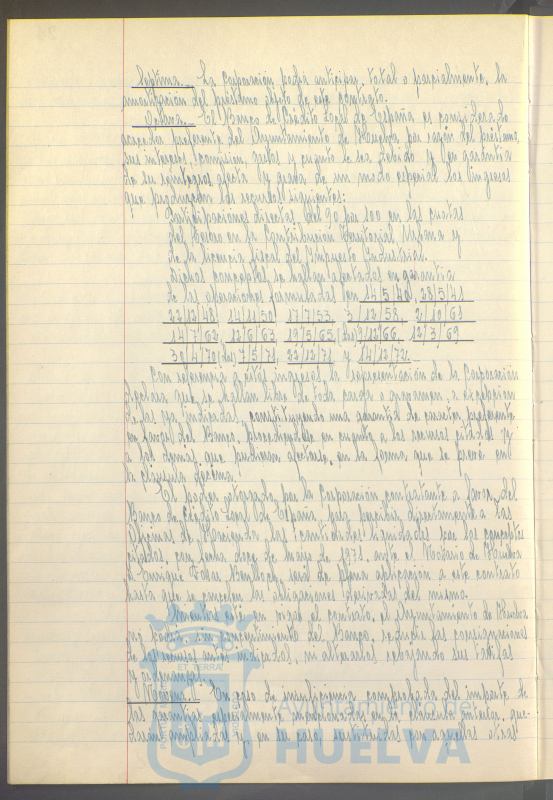 Septima.- La Corporación podrá anticipar, total o parcialmente, la
amortización del préstamo objeto de este contrato.
Octava.- El Banco de Crédito Local de España es considerado
acreedor preferente del Ayuntamiento de Huelva por razón del préstamo,
sus intereses, comisión, gastos y cuanto le sea debido y en garantía
de su reintegro, afecta y grava de un modo especial los ingresos
que produzcan los recursos siguientes:
Participaciones directas del 90 por 100 en las cuotas
del Tesoro en la Contribución Territorial Urbana y
de la licencia fiscal del Impuesto Industrial.
Dichos conceptos se hallan afectados en garantía
de las operaciones formuladas en 14/5/40, 28/5/41
22/12/48, 14/11/50 17/7/53, 3/12/58, 2/10/63
14/7/62, 12/6/63 19/5/65, (dos) 9/12/66, 12/3/69
30/4/70 (dos) 7/5/71, 22/12/71 y 14/12/72.
Con referencia a éstos ingresos, la representación de la Corporación
declara que se hallan libres de toda carga o gravamen, a excepción
de las ya indicadas, constituyendo una garantía de carácter preferente
en favor del Banco, procediéndose en cuanto a los recursos citados y
a los demás que pudieran afectarse, en la forma que se prevé en
la cláusula décima.
El poder otorgado por la Corporación contratante a favor del
Banco de Crédito Local de España, para percibir directamente de las
Oficinas de Hacienda las cantidades liquidadas por los conceptos
citados, con fecha doce de mayo de 1971, ante el Notario de Huelva
D. Enrique Tobar, será de plena aplicación a este contrato
hasta que se cancelen las obligaciones derivadas del mismo.
Mientras esté en vigor el contrato, el Ayuntamiento de Huelva
no podrá, sin consentimiento del Banco, reducir las consignaciones
de los recursos antes indicados, ni alterarlos rebajando sus tarifas
y ordenanzas.
Novena.- En caso de insuficiencia comprobada del importe de
las garantías especialmente mencionadas en la cláusula anterior, que-
darán ampliadas y, en su caso, sustituidas con aquellos otras
ET TERRAE
Ayuntamiento de
HUELVA